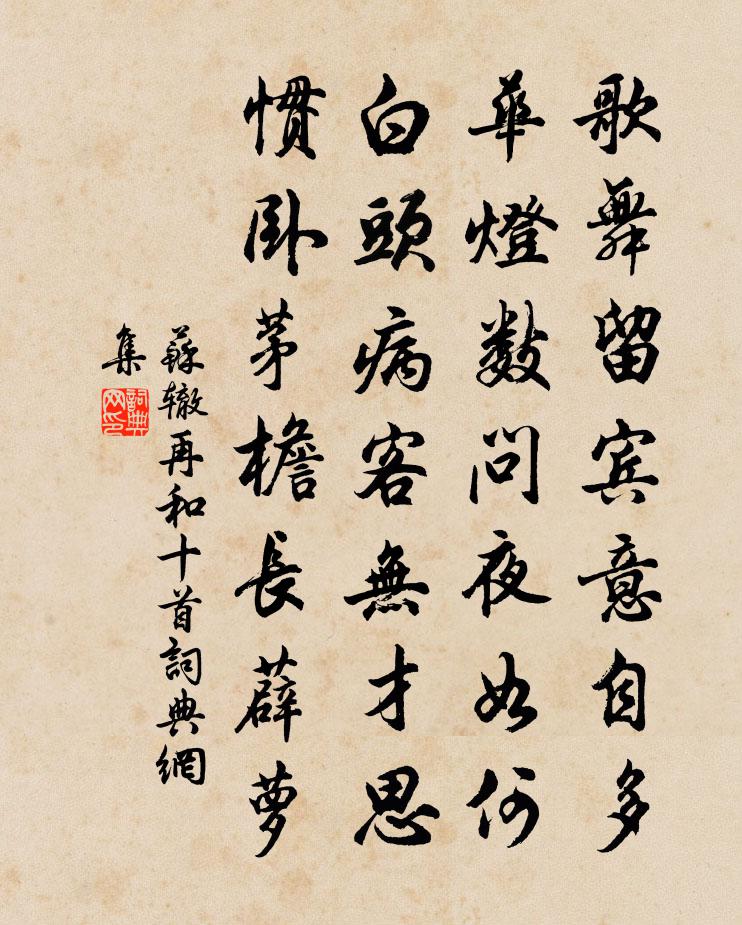 歌舞留宾意自多
華燈數問夜如何
白頭病客無才思
慣卧茅檐長薜萝
蘇辙再和十首詞典網
集
詞典
网印